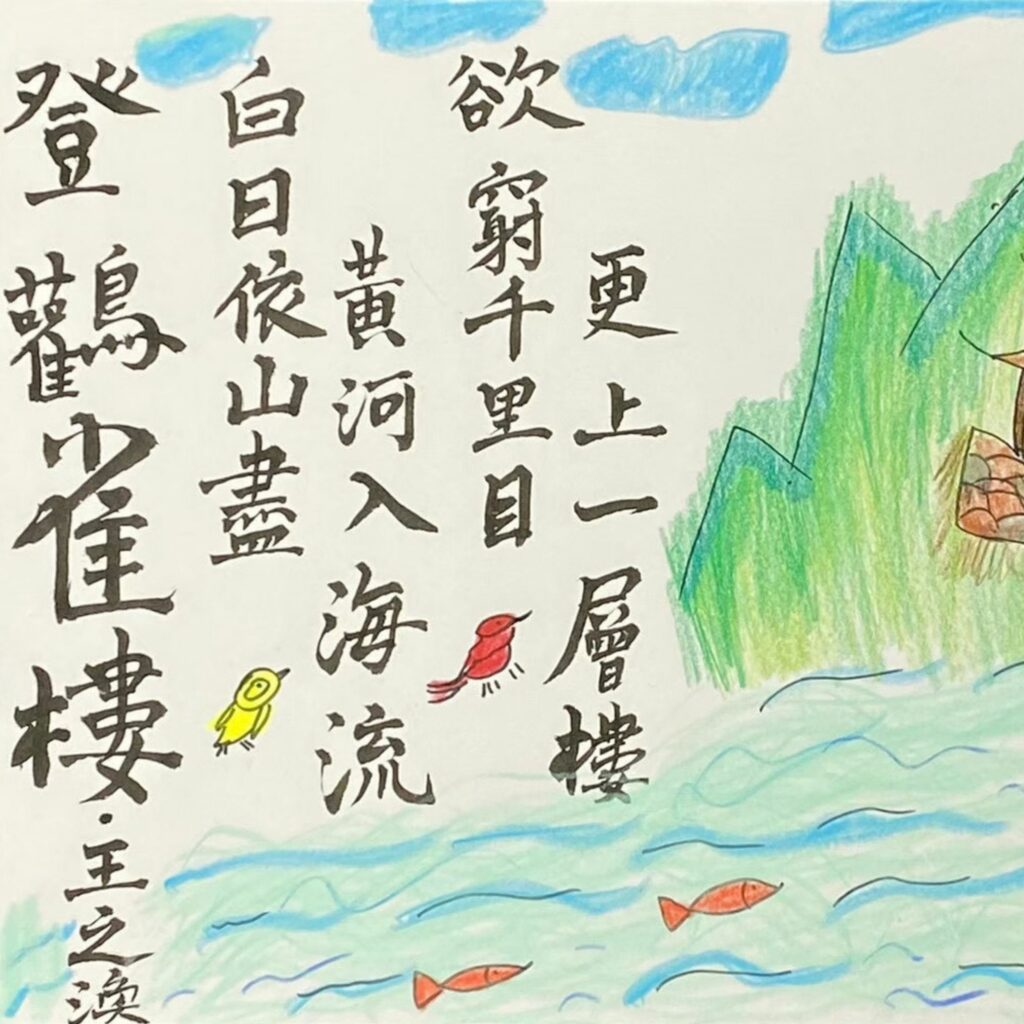 登鸛雀樓·王之渙
白日依山盡
黃河入海流
欲窮千里目
更上一層樓